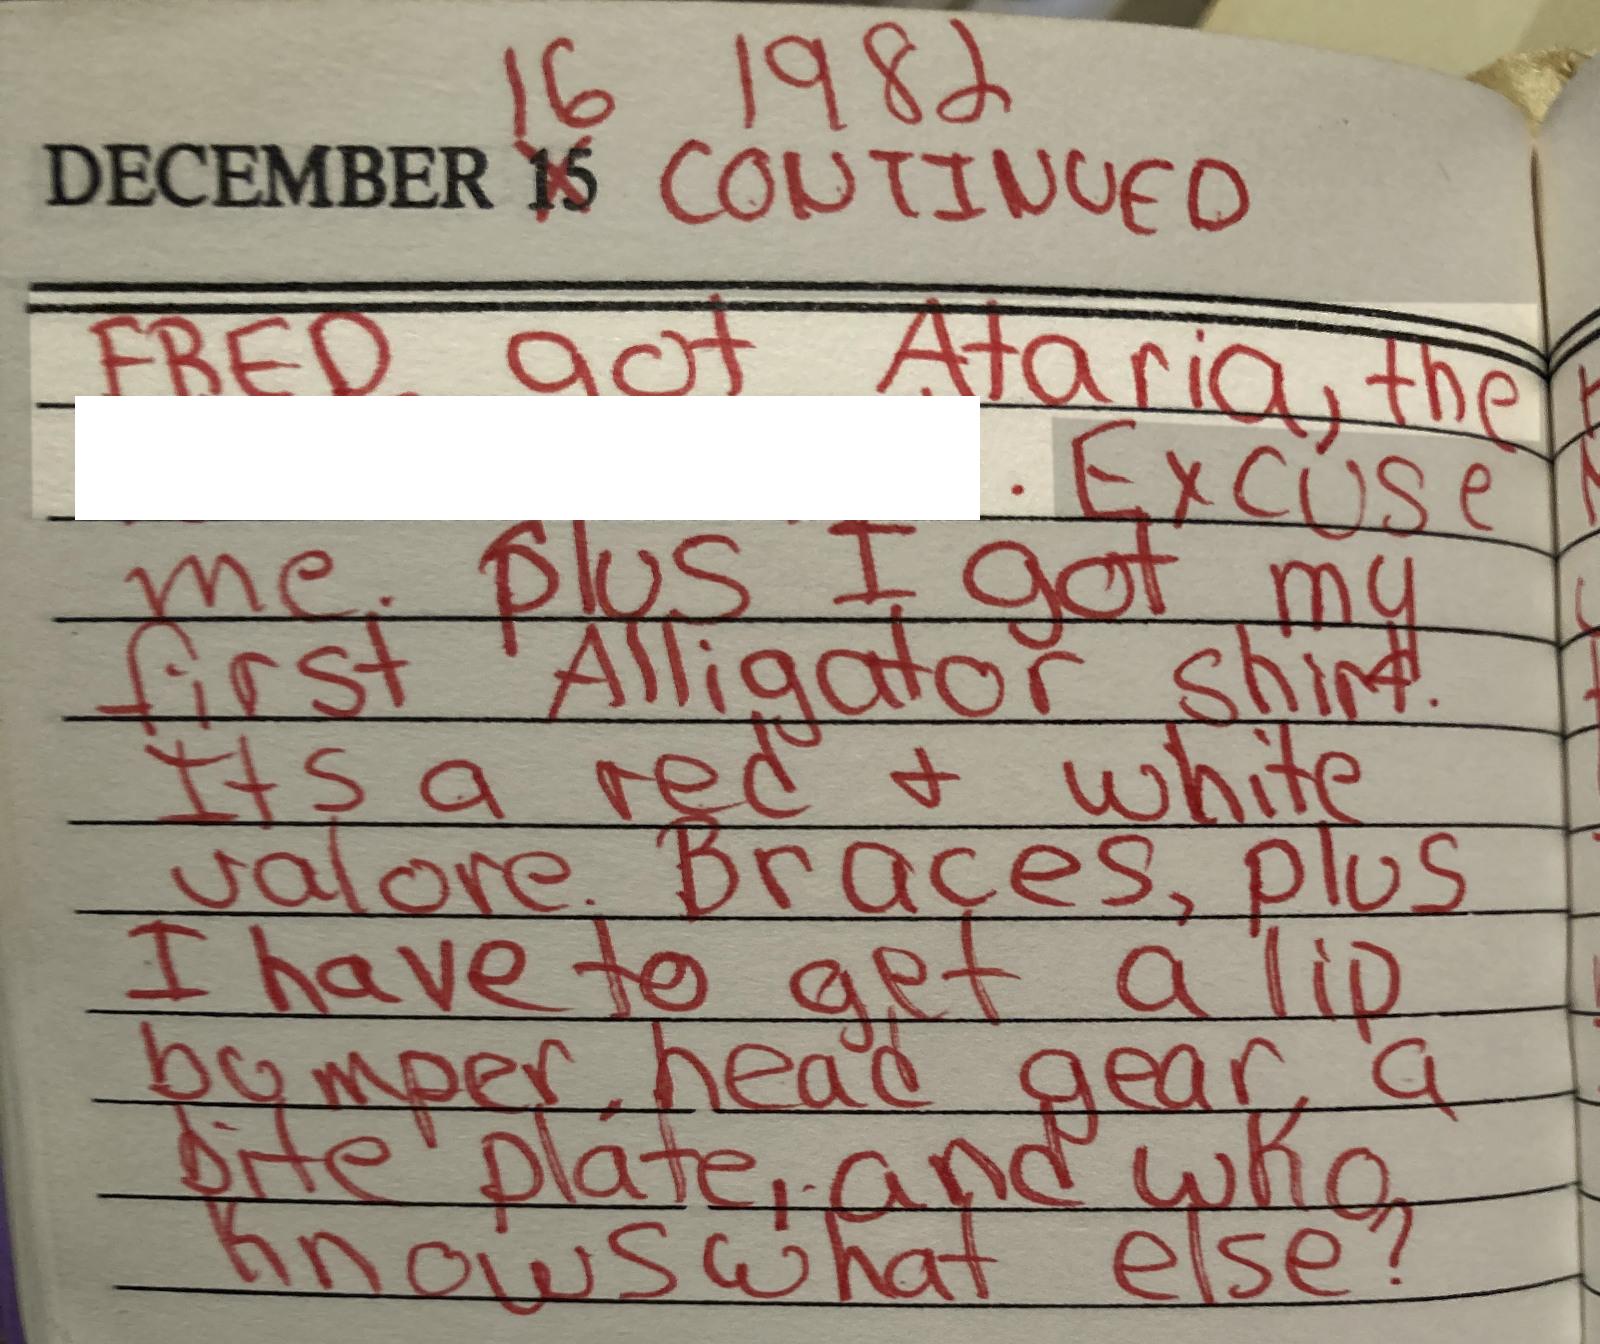 16 1982
DECEMBER 15 CONTINUED
FRED got Ataria, the
. Excuse
me. plus I got my
first Alligator shirt.
Its a red + white
valore. Braces, plus
I have to get a lip
bumper, head gear, a
bite plate, and who
knows what else?